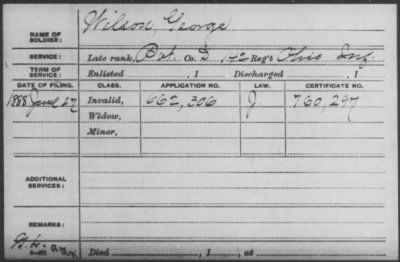 Wilson, George
NAME OF SOLDIER:
SERVICE: Late rank, Pvt. Co. I, 142 Reg't Ohio Inf.
TERM OF SERVICE: Enlisted , 1 Discharged , 1
DATE OF FILING. CLASS. APPLICATION NO. LAW. CERTIFICATE NO.
1888 June 27 Invalid, 662,306 J. 760,297
Widow,
Minor,
ADDITIONAL SERVICES:
REMARKS:
Died , 1 , at